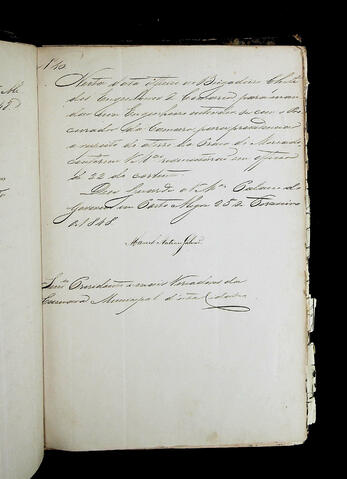 N. 40
Nesta data officio ao Brigadeiro Chefe
dos Engenheiros
dar um Engenheiro entender-se com o Pro-
curador da Camara para providenciar
a respeito do aterro da Praça do Mercado,
conforme V. Mces. em officio
de 22 do corrente.
Deos Guarde a V. Mces. Palacio do
Governo em Porto Alegre 25 de Fevereiro
de 1848.
Manoel Antonio Galvão
Senres. Presidente e mais Vereadores da
Camara Municipal d'esta Cidade